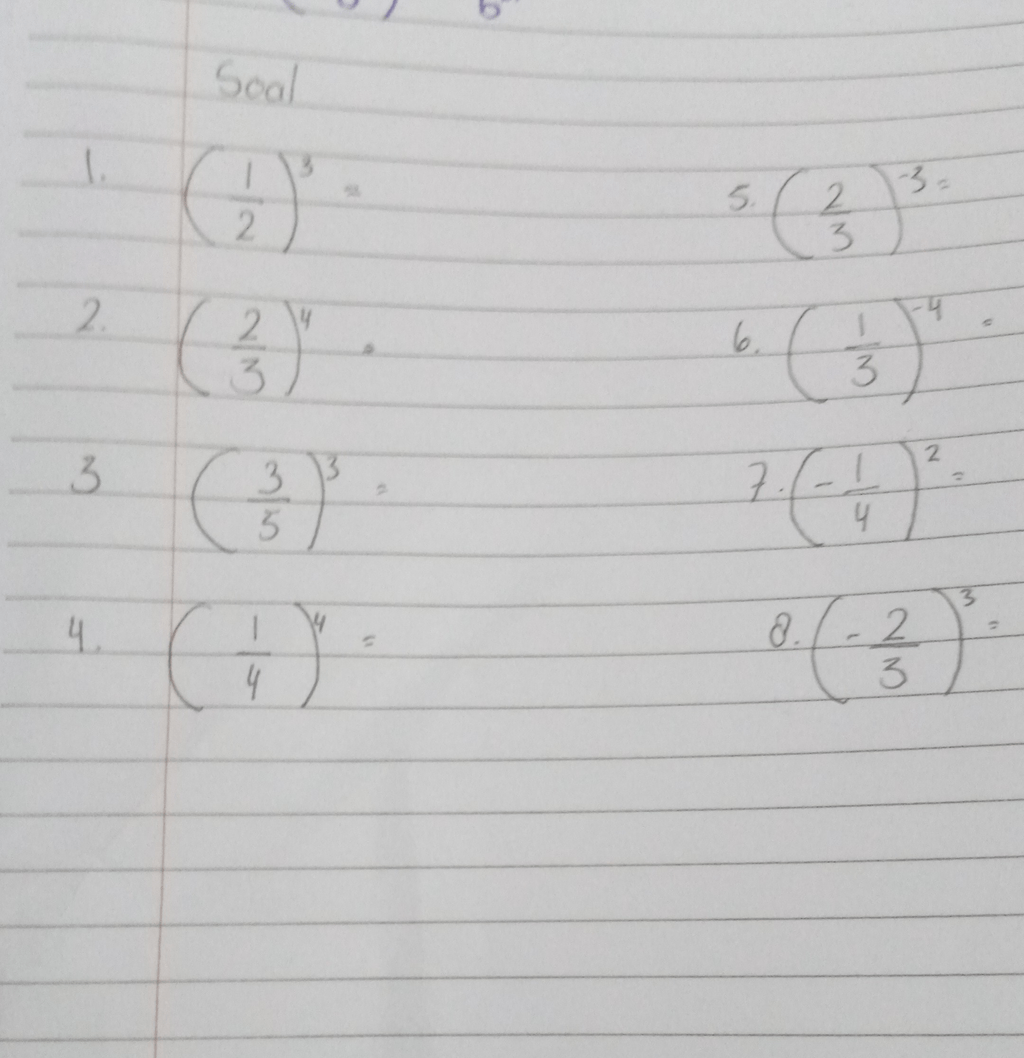 Soal
1. (1/2)³ =
2. (2/3)⁴ =
3 (3/5)³ =
4. (1/4)⁴ =
5. (2/3)⁻³ =
6. (1/3)⁻⁴ =
7. (-1/4)² =
8. (-2/3)³ =